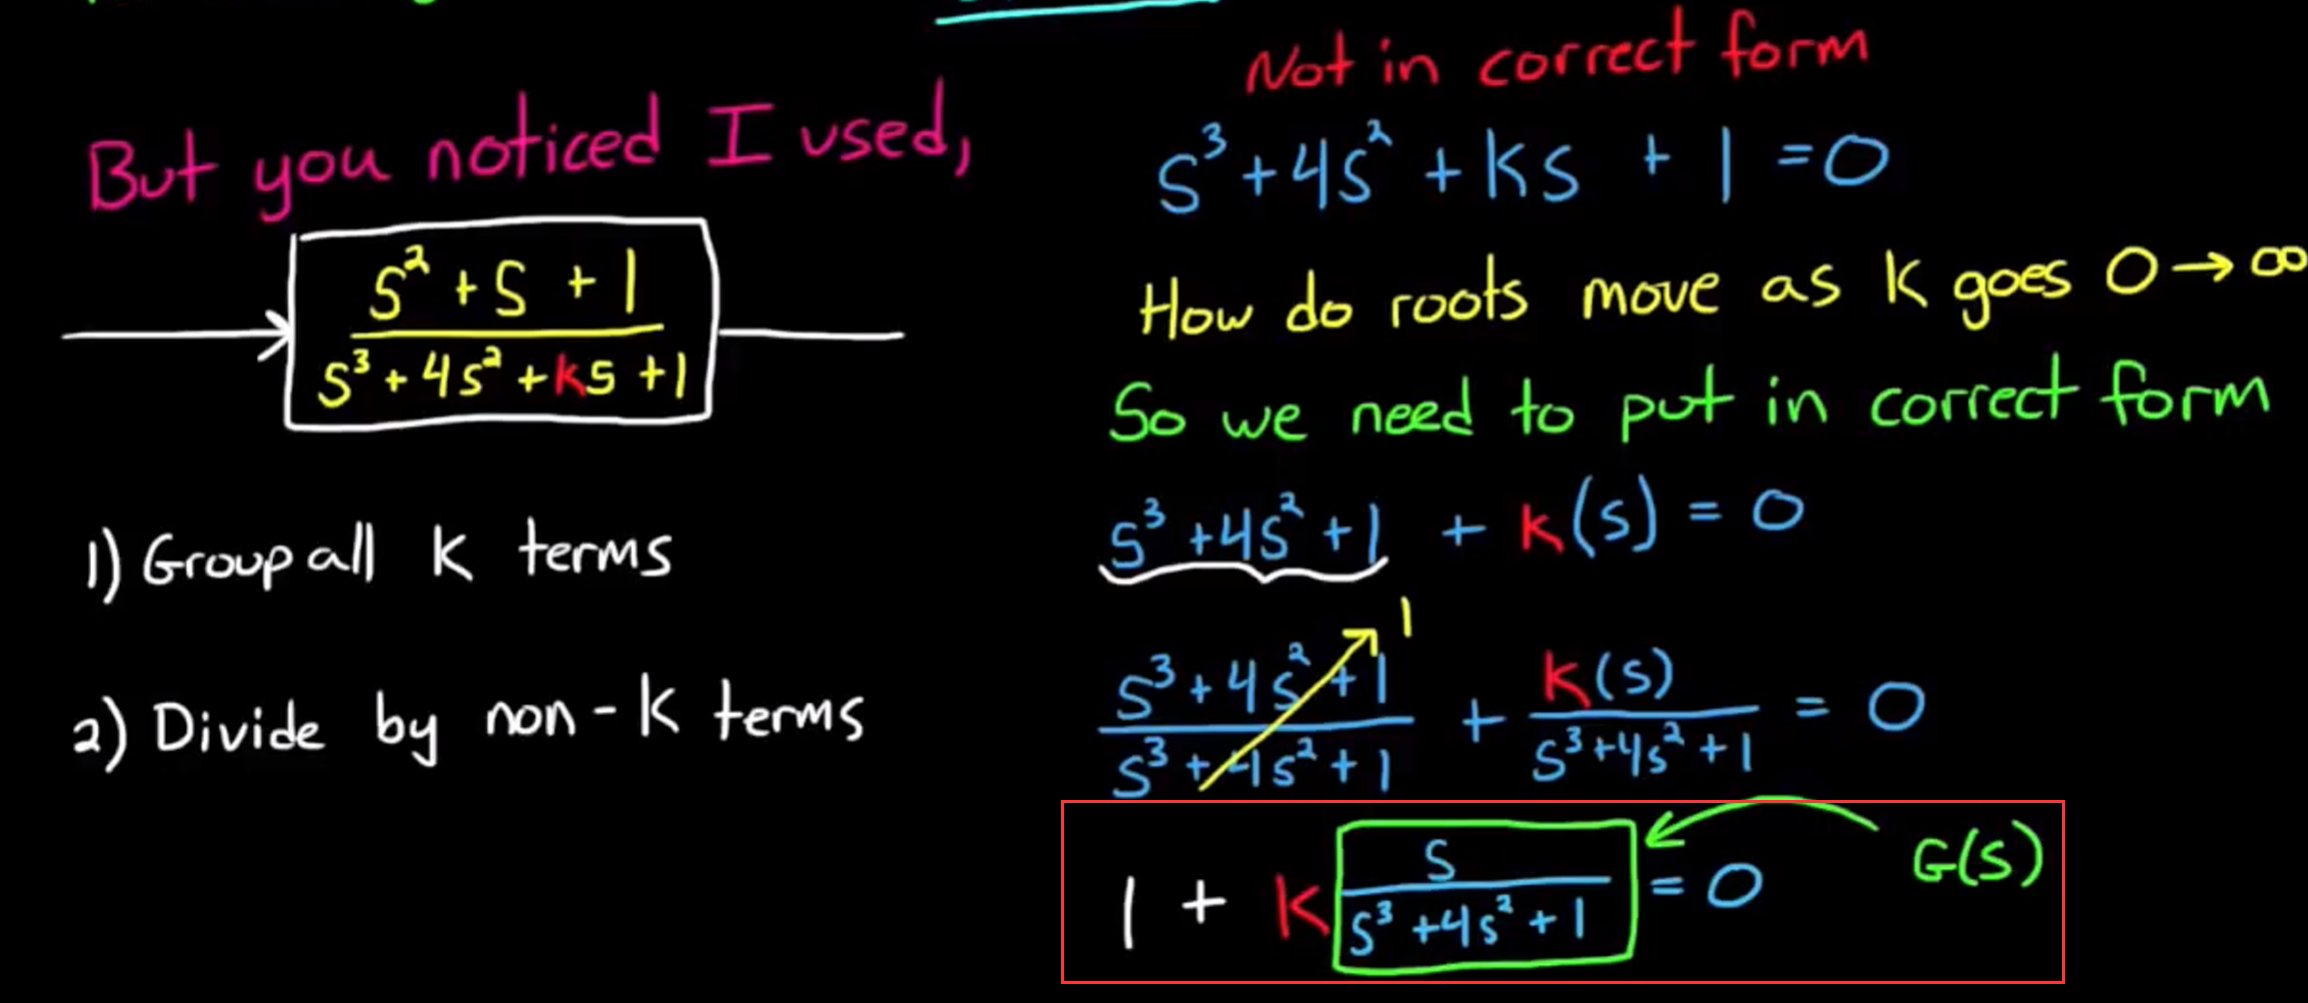 But you noticed I used,
s² + s + 1
s³ + 4s² + ks + 1
1) Group all K terms
2) Divide by non-K terms
Not in correct form
s³ + 4s² + Ks + 1 = 0
How do roots move as K goes 0 → ∞
So we need to put in correct form
s³ + 4s² + 1 + K(s) = 0
1
s³ + 4s² + 1 / s³ + 4s² + 1 + K(s) / s³ + 4s² + 1 = 0
1 + K s / s³ + 4s² + 1 = 0 G(s)